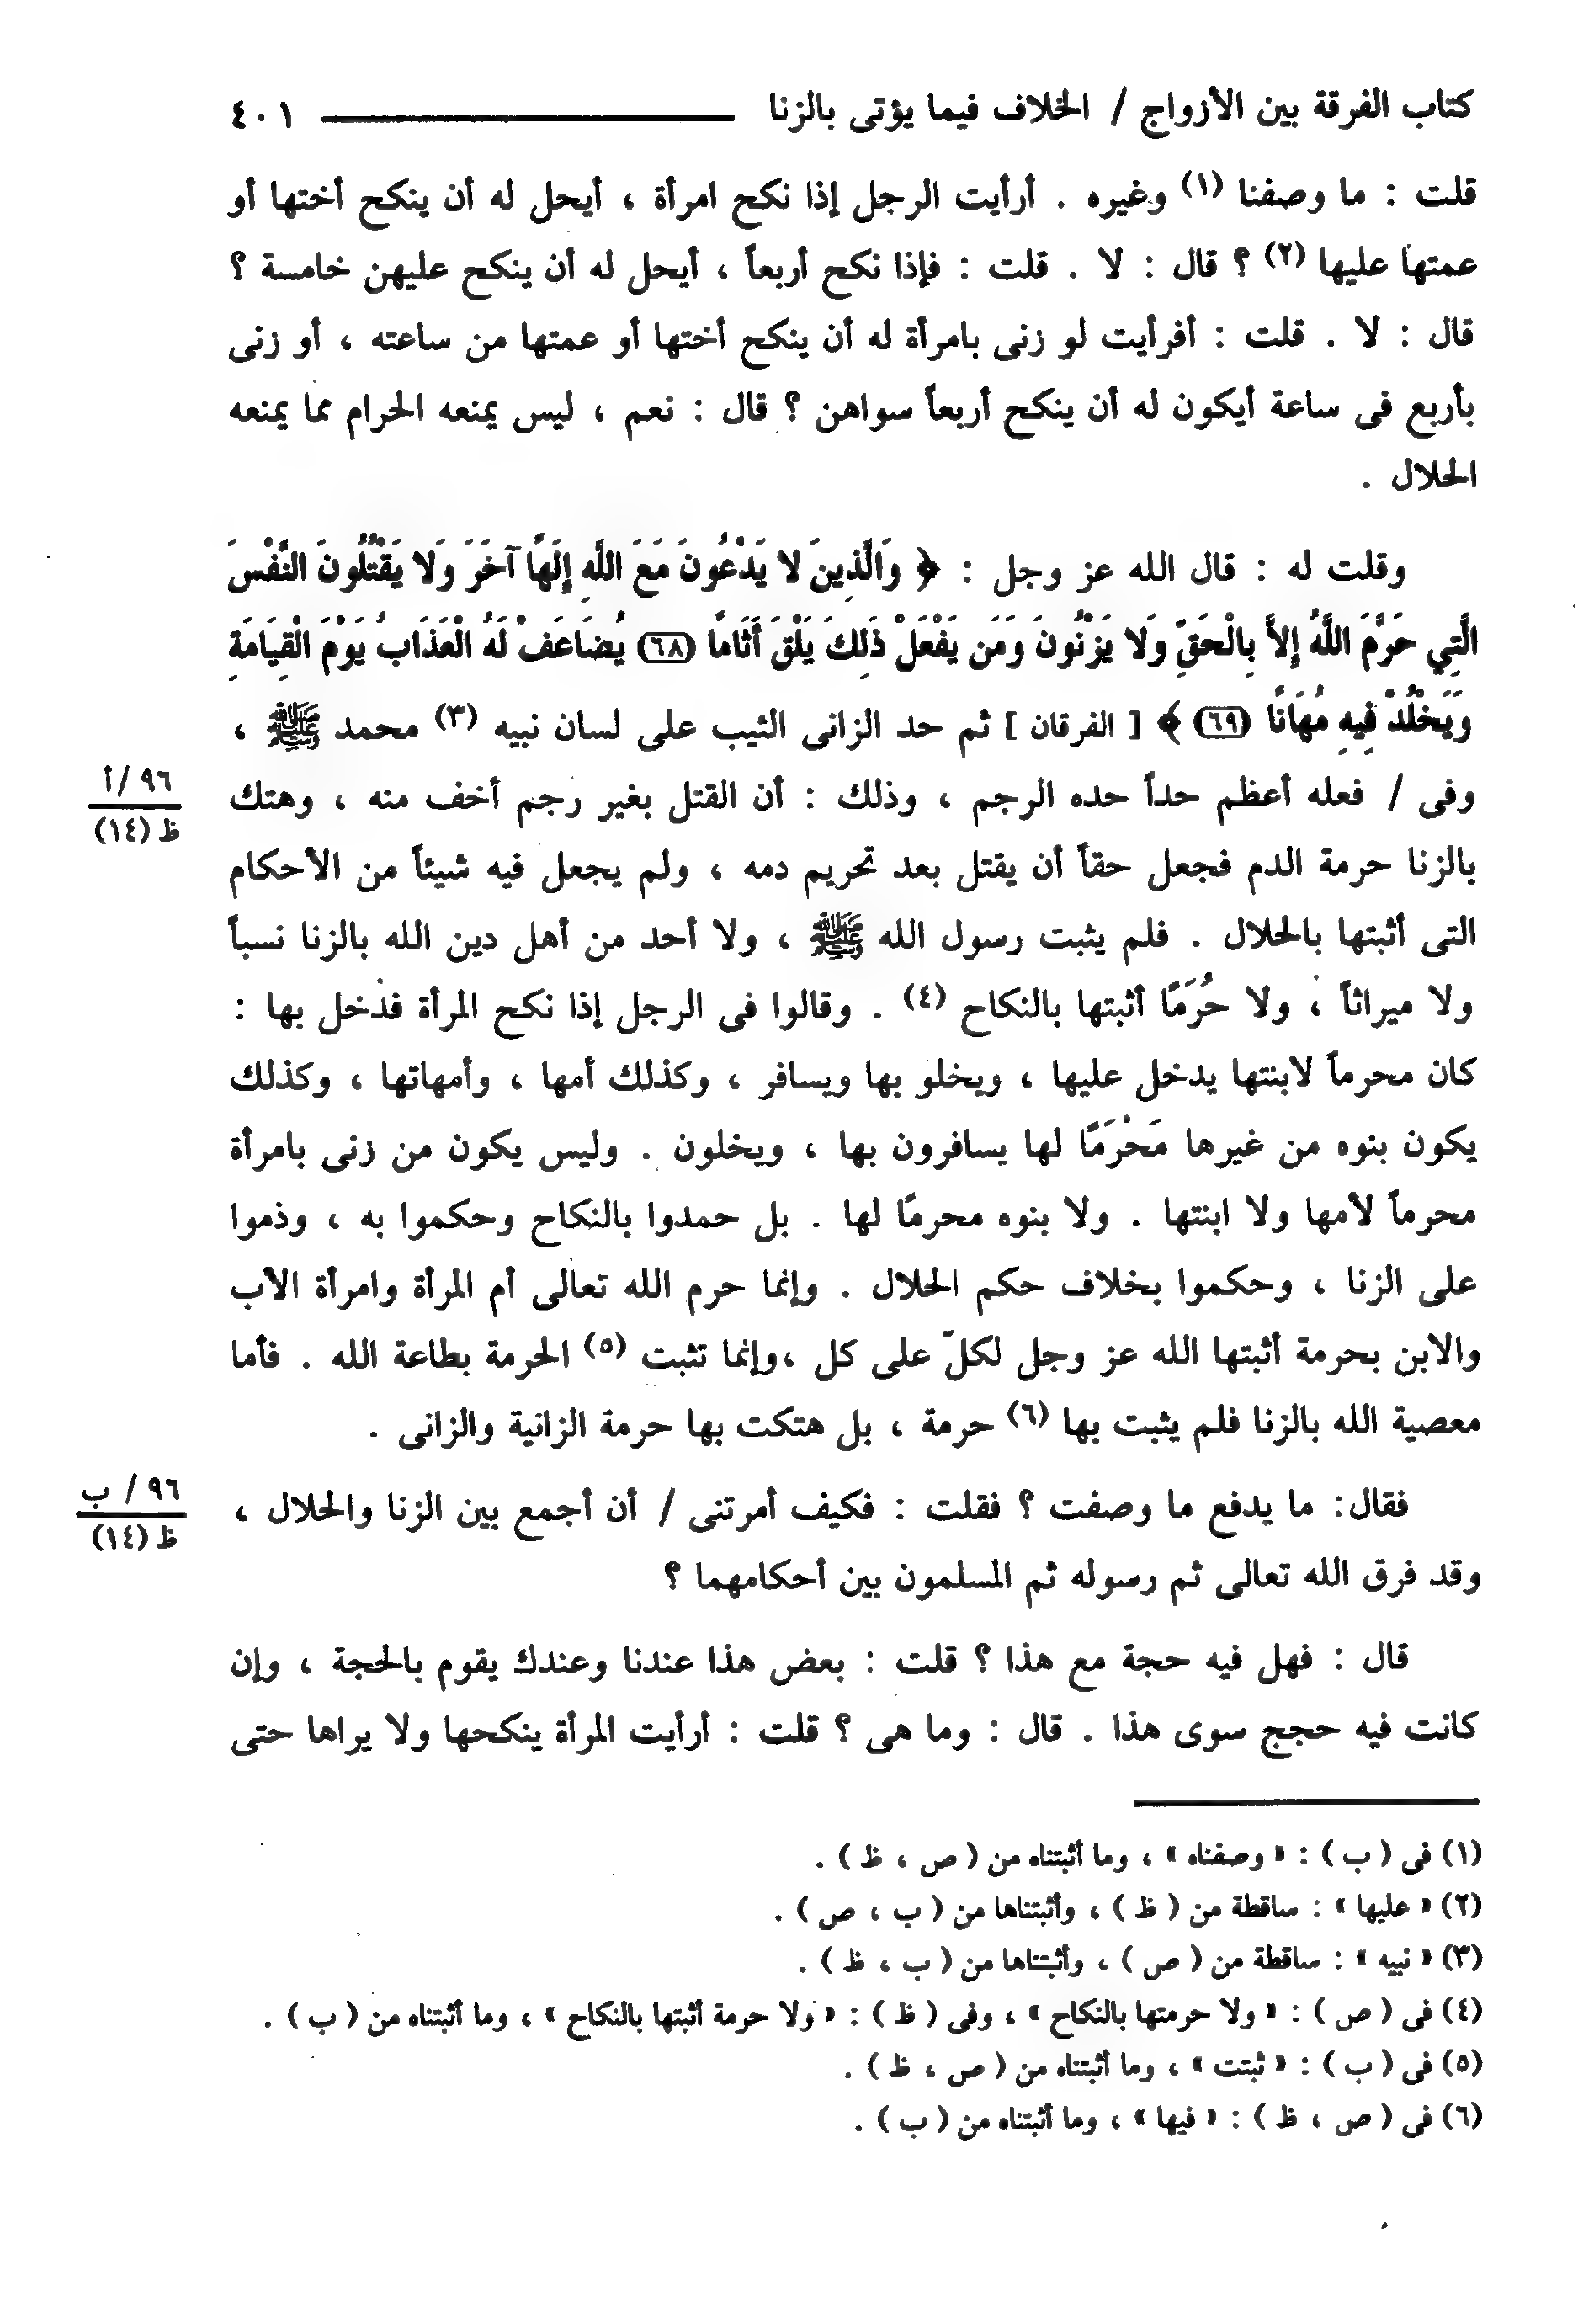 كتاب الفرقة بين الأزواج / الخلاف فيما يؤتى بالزنا ٤٠١
قلت : ما وصفنا (١) وغيره . أرأيت الرجل إذا نكح امرأة ، أيحل له أن ينكح أختها أو
عمتها عليها (٢) ؟ قال : لا . قلت : فإذا نكح أربعاً ، أيحل له أن ينكح عليهن خامسة ؟
قال : لا . قلت : أفرأيت لو زنى بامرأة له أن ينكح أختها أو عمتها من ساعته ، أو زنى
بأربع فى ساعة أيكون له أن ينكح أربعاً سواهن ؟ قال : نعم ، ليس يمنعه الحرام مما يمنعه
الحلال .
وقلت له : قال الله عز وجل : ﴿ وَالَّذِينَ لا يَدْعُونَ مَعَ اللَّهِ إِلَهًا آخَرَ وَلا يَقْتُلُونَ النَّفْسَ
الَّتِي حَرَّمَ اللَّهُ إِلاَّ بِالْحَقِّ وَلا يَزْنُونَ وَمَن يَفْعَلْ ذَلِكَ يَلْقَ أَثَامًا (٦٨) يُضَاعَفْ لَهُ الْعَذَابُ يَوْمَ الْقِيَامَةِ
وَيَخْلُدْ فِيهِ مُهَانًا (٦٩) ﴾ [ الفرقان ] ثم حد الزانى الثيب على لسان نبيه (٣) محمد ﷺ ،
وفى / فعله أعظم حداً حده الرجم ، وذلك : أن القتل بغير رجم أخف منه ، وهتك
٩٦ /أ
ظ (١٤)
بالزنا حرمة الدم فجعل حقاً أن يقتل بعد تحريم دمه ، ولم يجعل فيه شيئاً من الأحكام
التى أثبتها بالحلال . فلم يثبت رسول الله ﷺ ، ولا أحد من أهل دين الله بالزنا نسباً
ولا ميراثاً ، ولا حُرَمًا أثبتها بالنكاح (٤) . وقالوا فى الرجل إذا نكح المرأة فدخل بها :
كان محرماً لابنتها يدخل عليها ، ويخلو بها ويسافر ، وكذلك أمها ، وأمهاتها ، وكذلك
يكون بنوه من غيرها مَحْرَمًا لها يسافرون بها ، ويخلون . وليس يكون من زنى بامرأة
محرماً لأمها ولا ابنتها . ولا بنوه محرمًا لها . بل حمدوا بالنكاح وحكموا به ، وذموا
على الزنا ، وحكموا بخلاف حكم الحلال . وإنما حرم الله تعالى أم المرأة وامرأة الأب
والابن بحرمة أثبتها الله عز وجل لكلّ على كل ،وإنما تثبت (٥) الحرمة بطاعة الله . فأما
معصية الله بالزنا فلم يثبت بها (٦) حرمة ، بل هتكت بها حرمة الزانية والزانى .
فقال: ما يدفع ما وصفت ؟ فقلت : فكيف أمرتنى / أن أجمع بين الزنا والحلال ،
٩٦ / ب
ظ (١٤)
وقد فرق الله تعالى ثم رسوله ثم المسلمون بين أحكامهما ؟
قال : فهل فيه حجة مع هذا ؟ قلت : بعض هذا عندنا وعندك يقوم بالحجة ، وإن
كانت فيه حجج سوى هذا . قال : وما هى ؟ قلت : أرأيت المرأة ينكحها ولا يراها حتى
(١) فى ( ب ) : « وصفناه » ، وما أثبتناه من ( ص ، ظ ) .
(٢) « عليها » : ساقطة من ( ظ ) ، وأثبتناها من ( ب ، ص ) .
(٣) « نبيه » : ساقطة من ( ص ) ، وأثبتناها من ( ب ، ظ ) .
(٤) فى ( ص ) : « ولا حرمتها بالنكاح » ، وفى ( ظ ) : « ولا حرمة أثبتها بالنكاح » ، وما أثبتناه من ( ب ) .
(٥) فى ( ب ) : « ثبتت » ، وما أثبتناه من ( ص ، ظ ) .
(٦) فى ( ص ، ظ ) : « فيها » ، وما أثبتناه من ( ب ) .